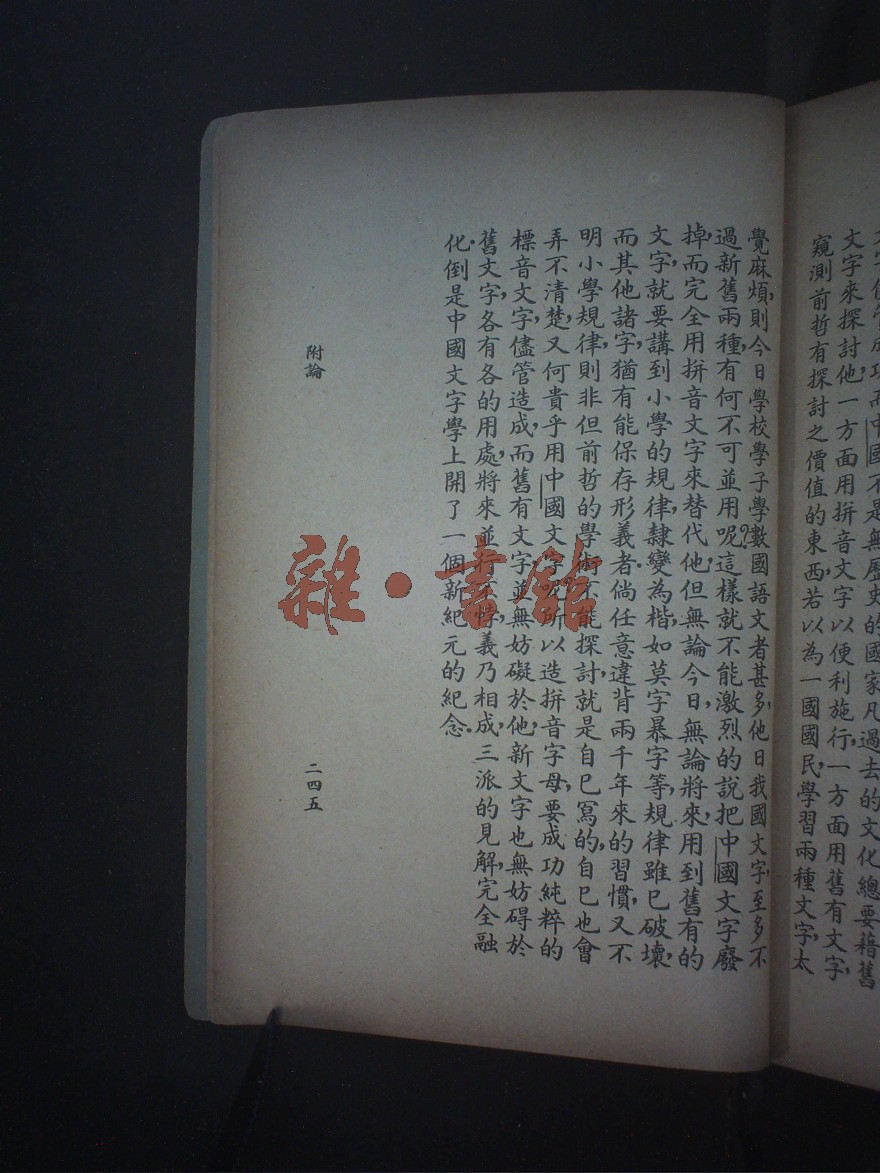 文字儘管成功而中國不是無歷史的國家凡過去的文化總要藉舊
文字來探討他一方面用拼音文字以便利施行，一方面用舊有文字，
窺測前哲有探討之價值的東西，若以為一國國民，學習兩種文字，太
覺麻煩，則今日學校學子學數國語文者甚多，他日我國文字，至多不
過新舊兩種，有何不可並用呢？這樣就不能激烈的說把中國文字廢
掉，而完全用拼音文字來替代他，但無論今日，無論將來，用到舊有的
文字，就要講到小學的規律，隸變為楷，如莫字暴字等，規律雖已破壞，
而其他諸字猶有能保存形義者。倘任意違背兩千年來的習慣，又不
明小學規律，則非但前哲的學術不能探討，就是自已寫的，自已也會
弄不清楚，又何貴乎用中國文字呢？所以造拼音字母，要成功純粹的
標音文字，儘管造成，而舊有文字並無妨礙於他，新文字也無妨碍於
舊文字，各有各的用處，將來並行不悖，義乃相成，三派的見解，完全融
化。倒是中國文字學上開了一個新紀元的紀念。
附論
二四五
雜·書館